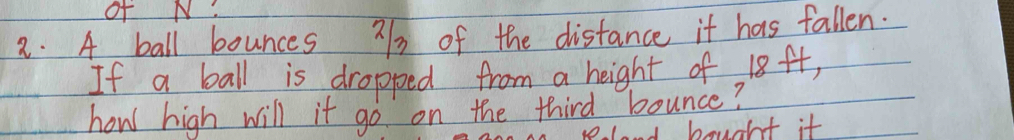 of N?
2. A ball bounces 2/3 of the distance it has fallen.
If a ball is dropped from a height of 18 ft,
how high will it go on the third bounce?
bought it